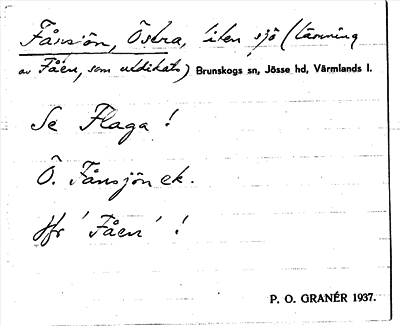 Fånsjön, Östra, liten sjö (tämning
av Fåen, som utdikats) Brunskogs sn, Jösse hd, Värmlands l.
Se Flaga!
Ö. Fånsjön ek.
Jfr 'Fåen'!
P. O. GRANÉR 1937.